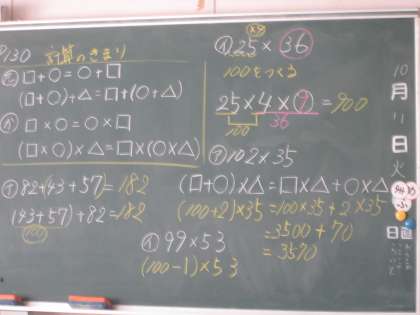 P130 計算のきまり
㋐ □+○=○+□
(□+○)+△=□+(○+△)
㋑ □×○=○×□
(□×○)×△=□×(○×△)
① 82+(43+57)=182
(43+57)+82=182
100
① 25×36
100をつくる
25×4×9=900
100
36
102×35
(□+○)×△=□×△+○×△
(100+2)×35=100×35+2×35
=3500+70
=3570
① 99×53
(100-1)×53
10
月
11
日
火
日直